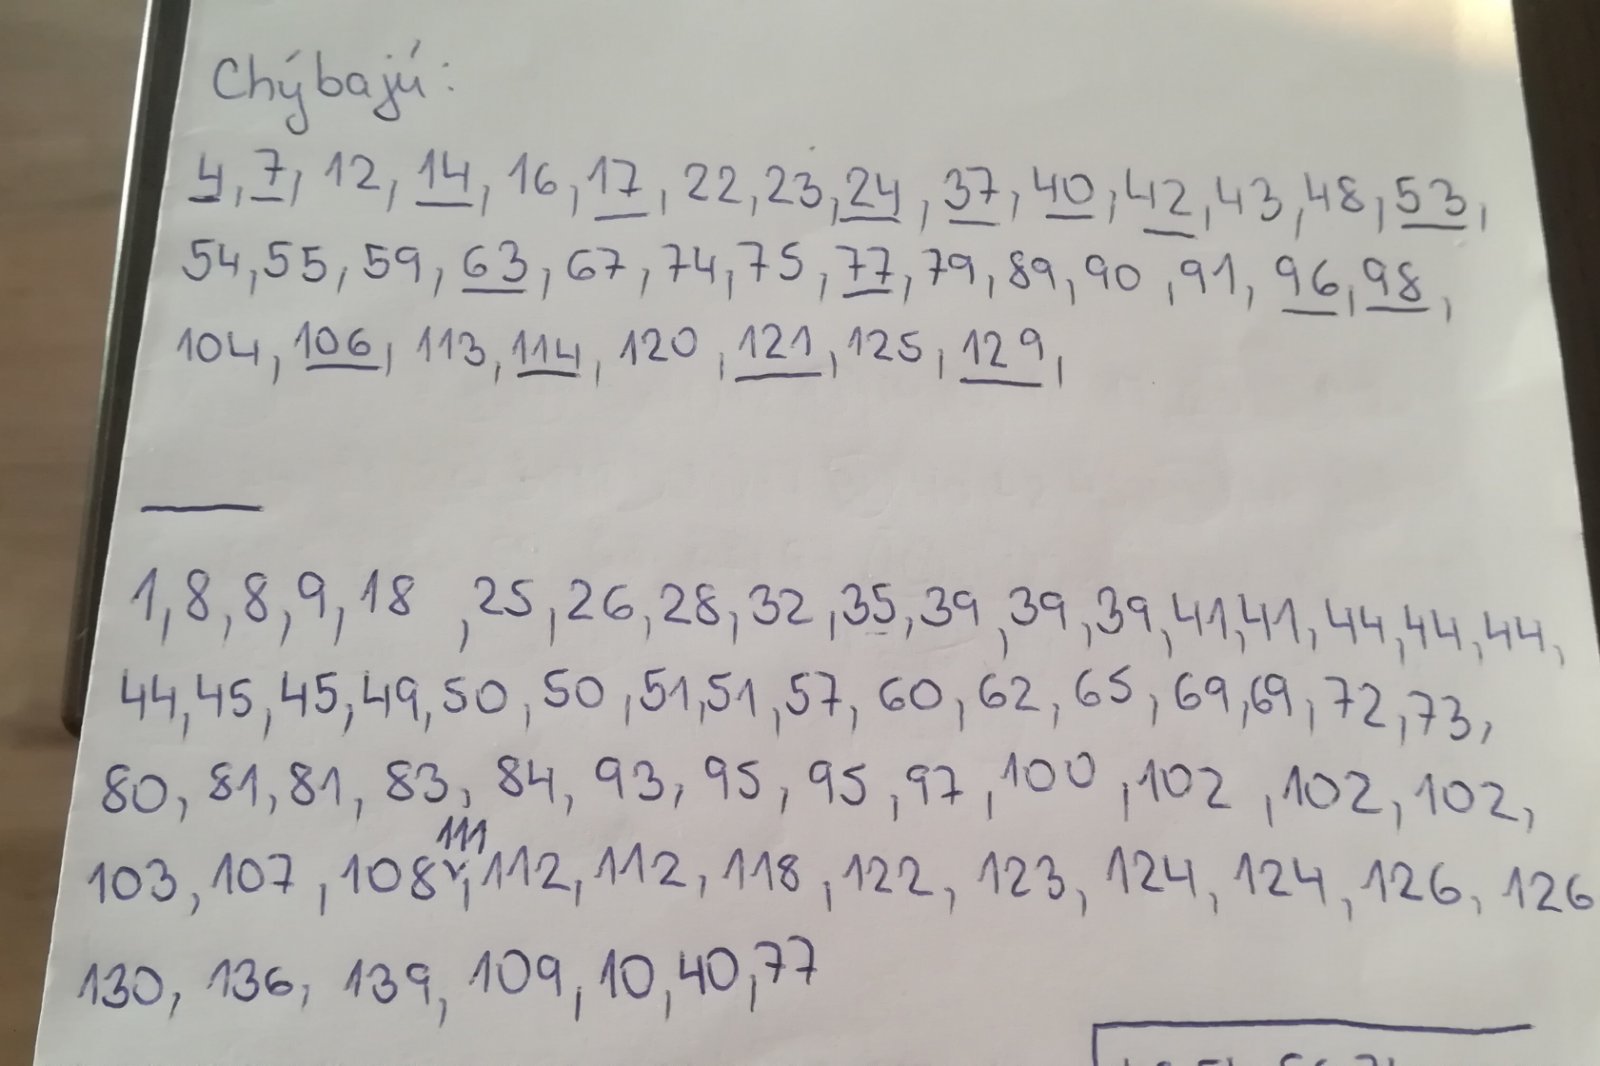 Chýbajú:
4, 7, 12, 14, 16, 17, 22, 23, 24, 37, 40, 42, 43, 48, 53,
54, 55, 59, 63, 67, 74, 75, 77, 79, 89, 90, 91, 96, 98,
104, 106, 113, 114, 120, 121, 125, 129,
1, 8, 8, 9, 18, 25, 26, 28, 32, 35, 39, 39, 39, 41, 41, 44, 44, 44,
44, 45, 45, 49, 50, 50, 51, 51, 57, 60, 62, 65, 69, 69, 72, 73,
80, 81, 81, 83, 84, 93, 95, 95, 97, 100, 102, 102, 102,
111
103, 107, 108, 112, 112, 118, 122, 123, 124, 124, 126, 126
130, 136, 139, 109, 10, 40, 77